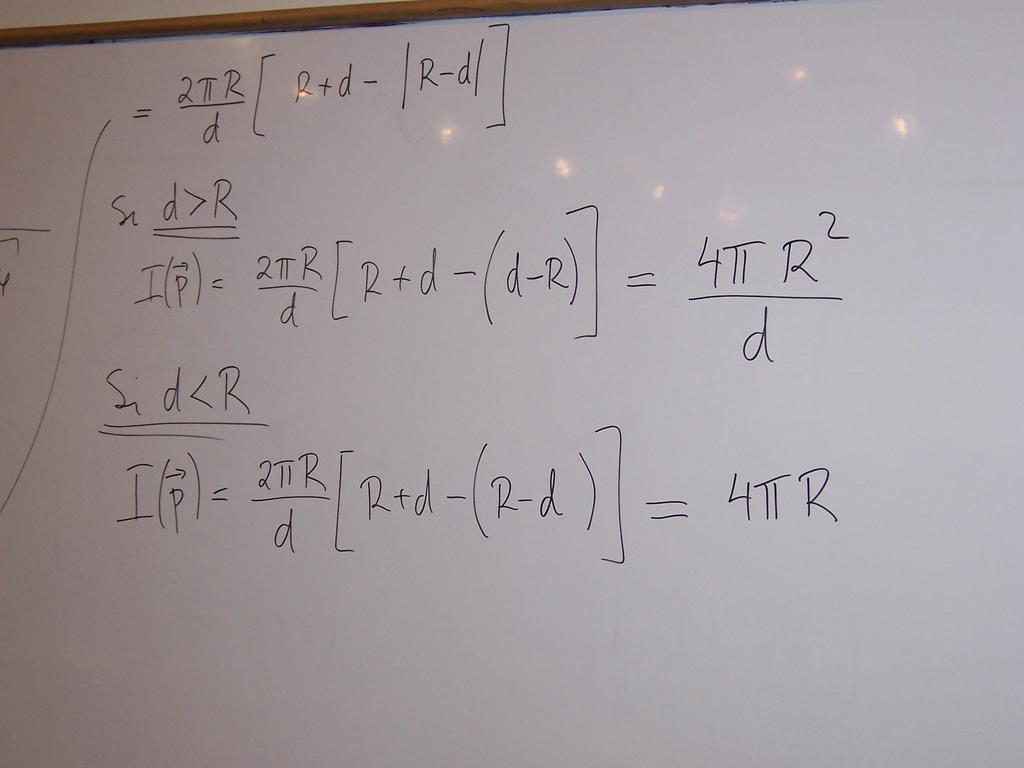 = 2πR/d [ R+d - |R-d| ]
Si d>R
I(p⃗) = 2πR/d [ R+d - (d-R) ] = 4πR²/d
Si d<R
I(p⃗) = 2πR/d [ R+d - (R-d) ] = 4πR